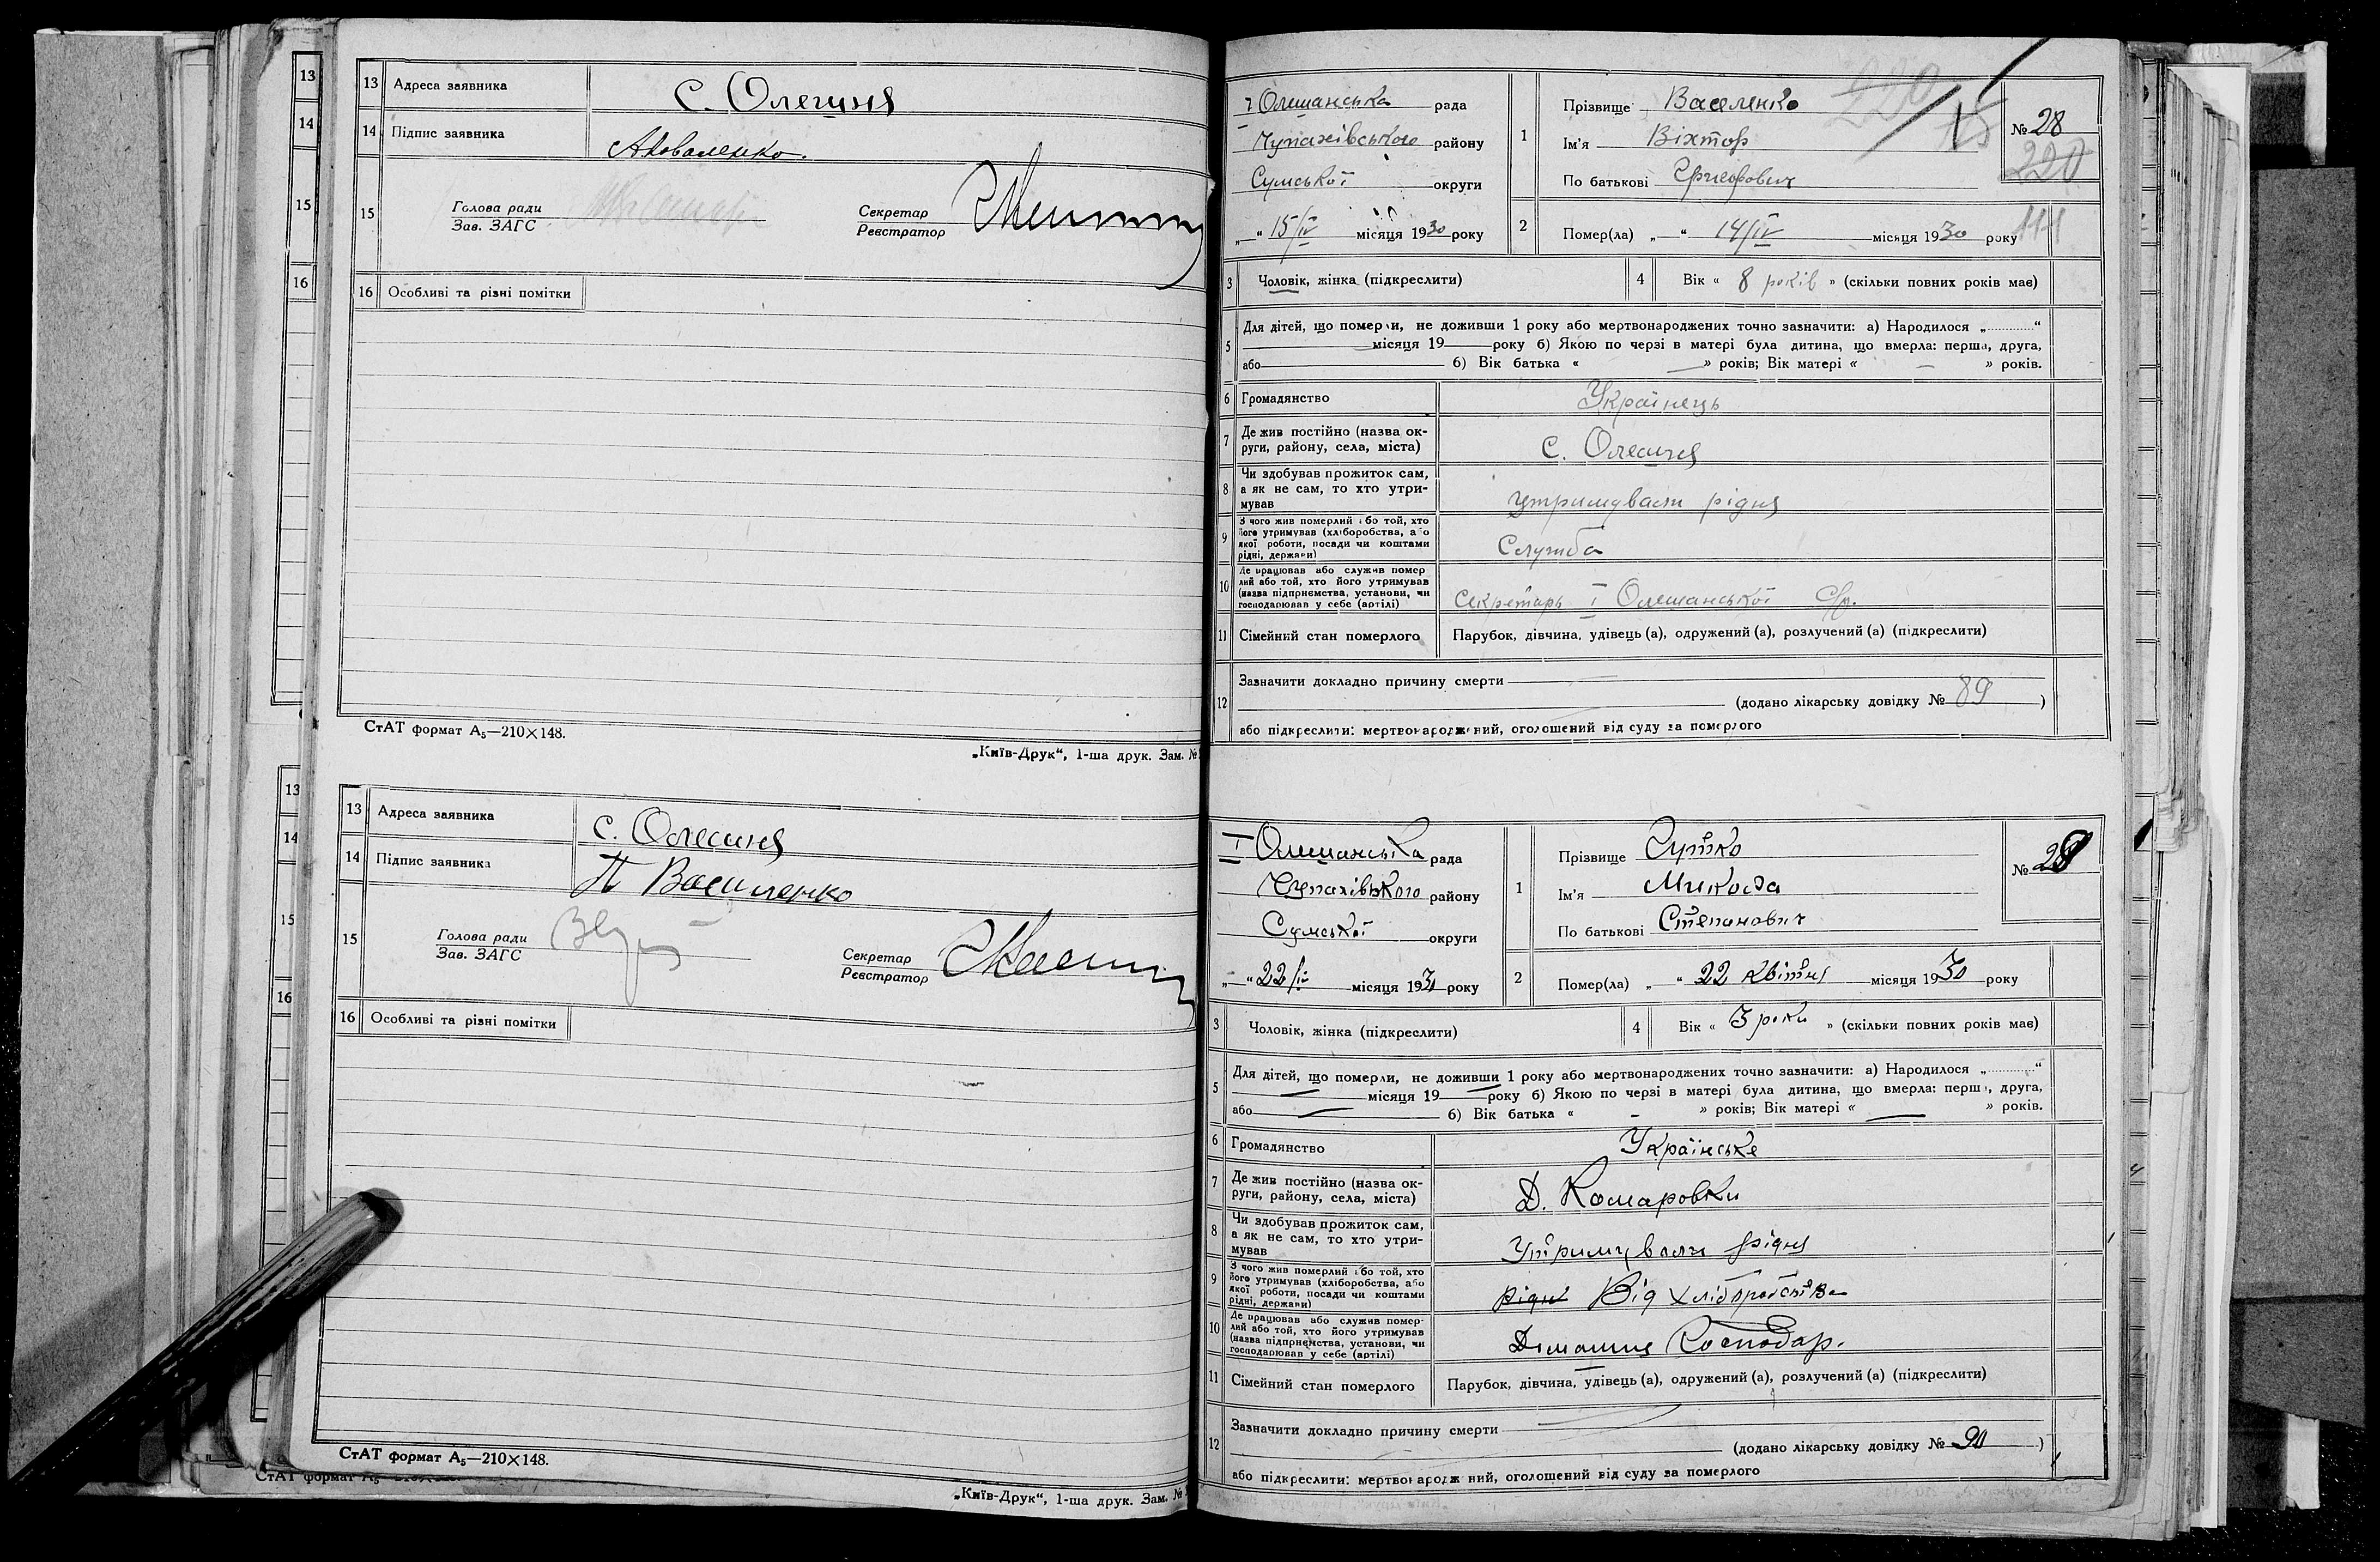 13 Адреса заявника с. Олешня
14 Підпис заявника А Коваленко.
15 Голова ради
Зав. ЗАГС
Секретар
Реєстратор
16 Особливі та різні помітки
СтАТ формат А5—210×148.
„Київ-Друк“, 1-ша друк. Зам. №
13 Адреса заявника с. Олешня
14 Підпис заявника П Василенко
15 Голова ради
Зав. ЗАГС
Секретар
Реєстратор
16 Особливі та різні помітки
СтАТ формат А5—210×148.
„Київ-Друк“, 1-ша друк. Зам. №
І Олешанська рада
Чупахівського району
Сумської округи
„—“ 15/IV місяця 1930 року
1 Прізвище Василенко
Ім'я Віктор
По батькові Григорович
№ 28
220
2 Помер(ла) „ “ 14/IV місяця 1930 року
3 Чоловік, жінка (підкреслити)
4 Вік « 8 років » (скільки повних років має)
5 Для дітей, що померли, не доживши 1 року або мертвонароджених точно зазначити: а) Народилося „............“
місяця 19 — року б) Якою по черзі в матері була дитина, що вмерла: перша, друга,
або — б) Вік батька « — » років; Вік матері « — » років.
6 Громадянство Українець
7 Де жив постійно (назва ок-
руги, району, села, міста) с. Олешня
8 Чи здобував прожиток сам,
а як не сам, то хто утри-
мував утримували рідня
9 З чого жив померлий або той, хто
його утримував (хліборобства, або
якої роботи, посади чи коштами
рідні, держави) Служба
10 Де працював або служив помер
лий або той, хто його утримував
(назва підприємства, установи, чи
господарював у себе (артілі) Секретарь І Олешанської с/р.
11 Сімейний стан померлого Парубок, дівчина, удівець (а), одружений (а), розлучений (а) (підкреслити)
12 Зазначити докладно причину смерти
(додано лікарську довідку № 89 )
або підкреслити: мертвонароджений, оголошений від суду за померлого
І Олешанська рада
Чупахівського району
Сумської округи
„—“ 22/IV місяця 1930 року
1 Прізвище
Ім'я Микола
По батькові Степанович
№ 29
2 Помер(ла) „ “ 22 квітня місяця 1930 року
3 Чоловік, жінка (підкреслити)
4 Вік « 3 роки » (скільки повних років має)
5 Для дітей, що померли, не доживши 1 року або мертвонароджених точно зазначити: а) Народилося „............“
місяця 19 — року б) Якою по черзі в матері була дитина, що вмерла: перша, друга,
або — б) Вік батька « — » років; Вік матері « — » років.
6 Громадянство Українське
7 Де жив постійно (назва ок-
руги, району, села, міста) Д. Комаровки
8 Чи здобував прожиток сам,
а як не сам, то хто утри-
мував Утримували рідня
9 З чого жив померлий або той, хто
його утримував (хліборобства, або
якої роботи, посади чи коштами
рідні, держави) рідні Від хліборобства
10 Де працював або служив помер-
лий або той, хто його утримував
(назва підприємства, установи, чи
господарював у себе (артілі) Домашнє Господар.
11 Сімейний стан померлого Парубок, дівчина, удівець (а), одружений (а), розлучений (а) (підкреслити)
12 Зазначити докладно причину смерти
(додано лікарську довідку № 90 )
або підкреслити: мертвонароджений, оголошений від суду за померлого